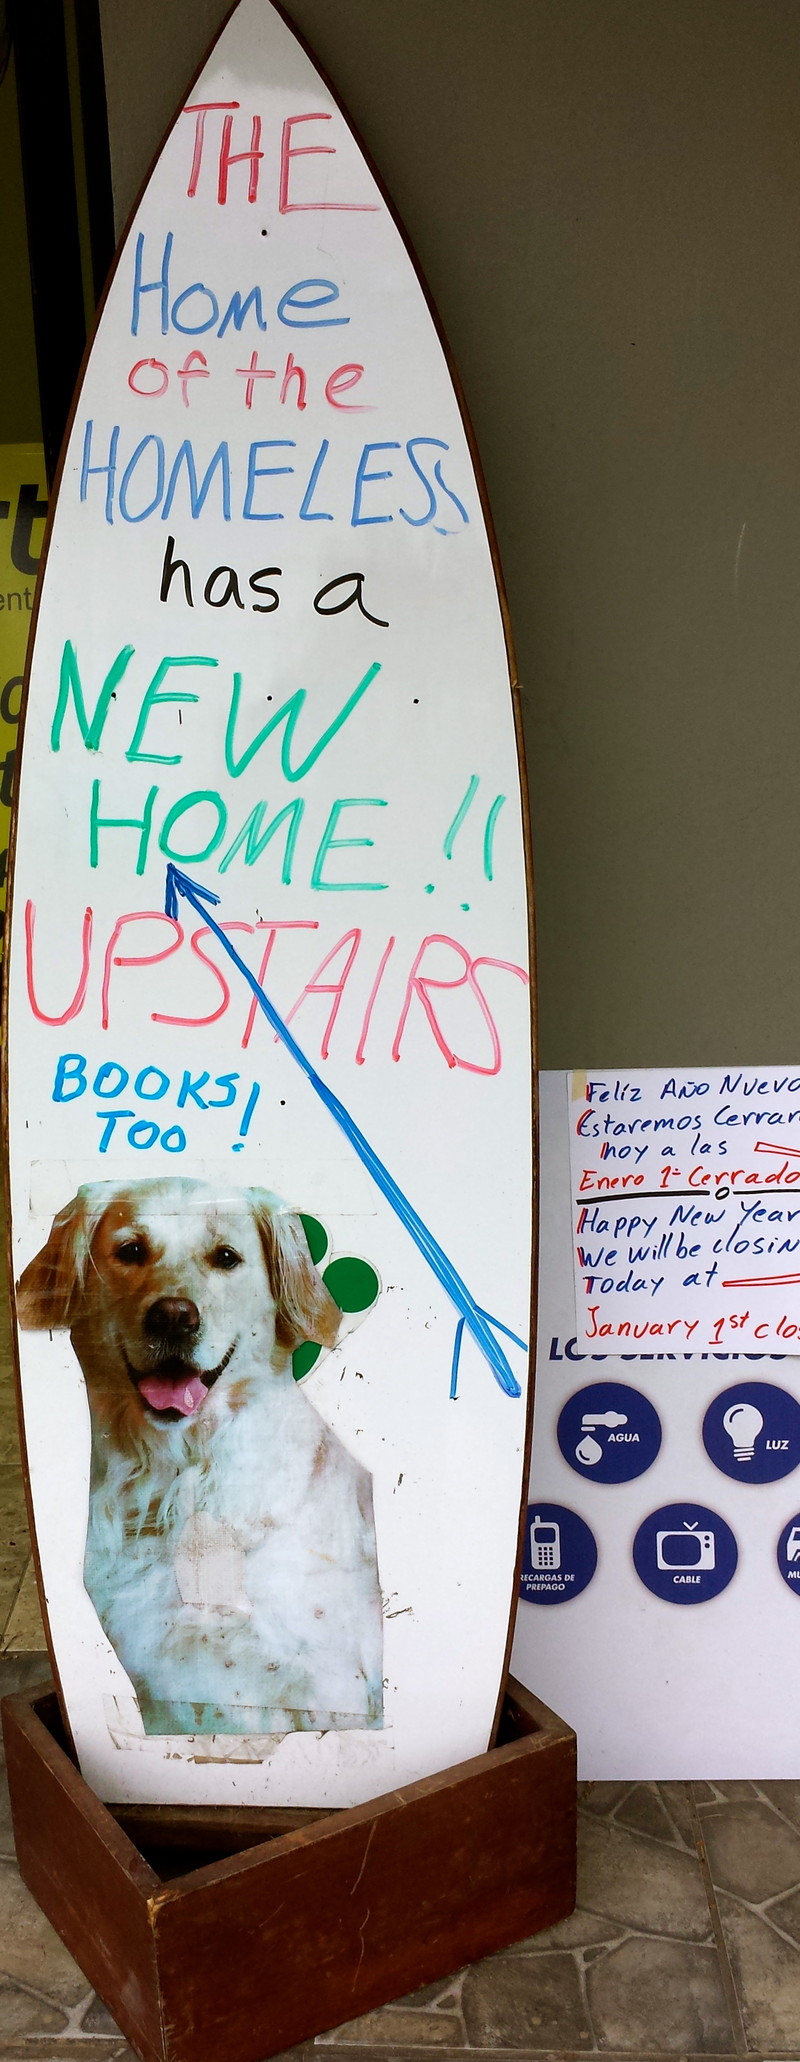 THE
Home
of the
HOMELESS
has a
NEW
HOME!!
UPSTAIRS
BOOKS!
TOO
Feliz Año Nuevo
Estaremos Cerran
hoy a las
Enero 1º Cerrado
Happy New Year
We will be closin
Today at
January 1st clos
LOS SERVICIOS
AGUA
LUZ
RECARGAS DE
PREPAGO
CABLE
MU